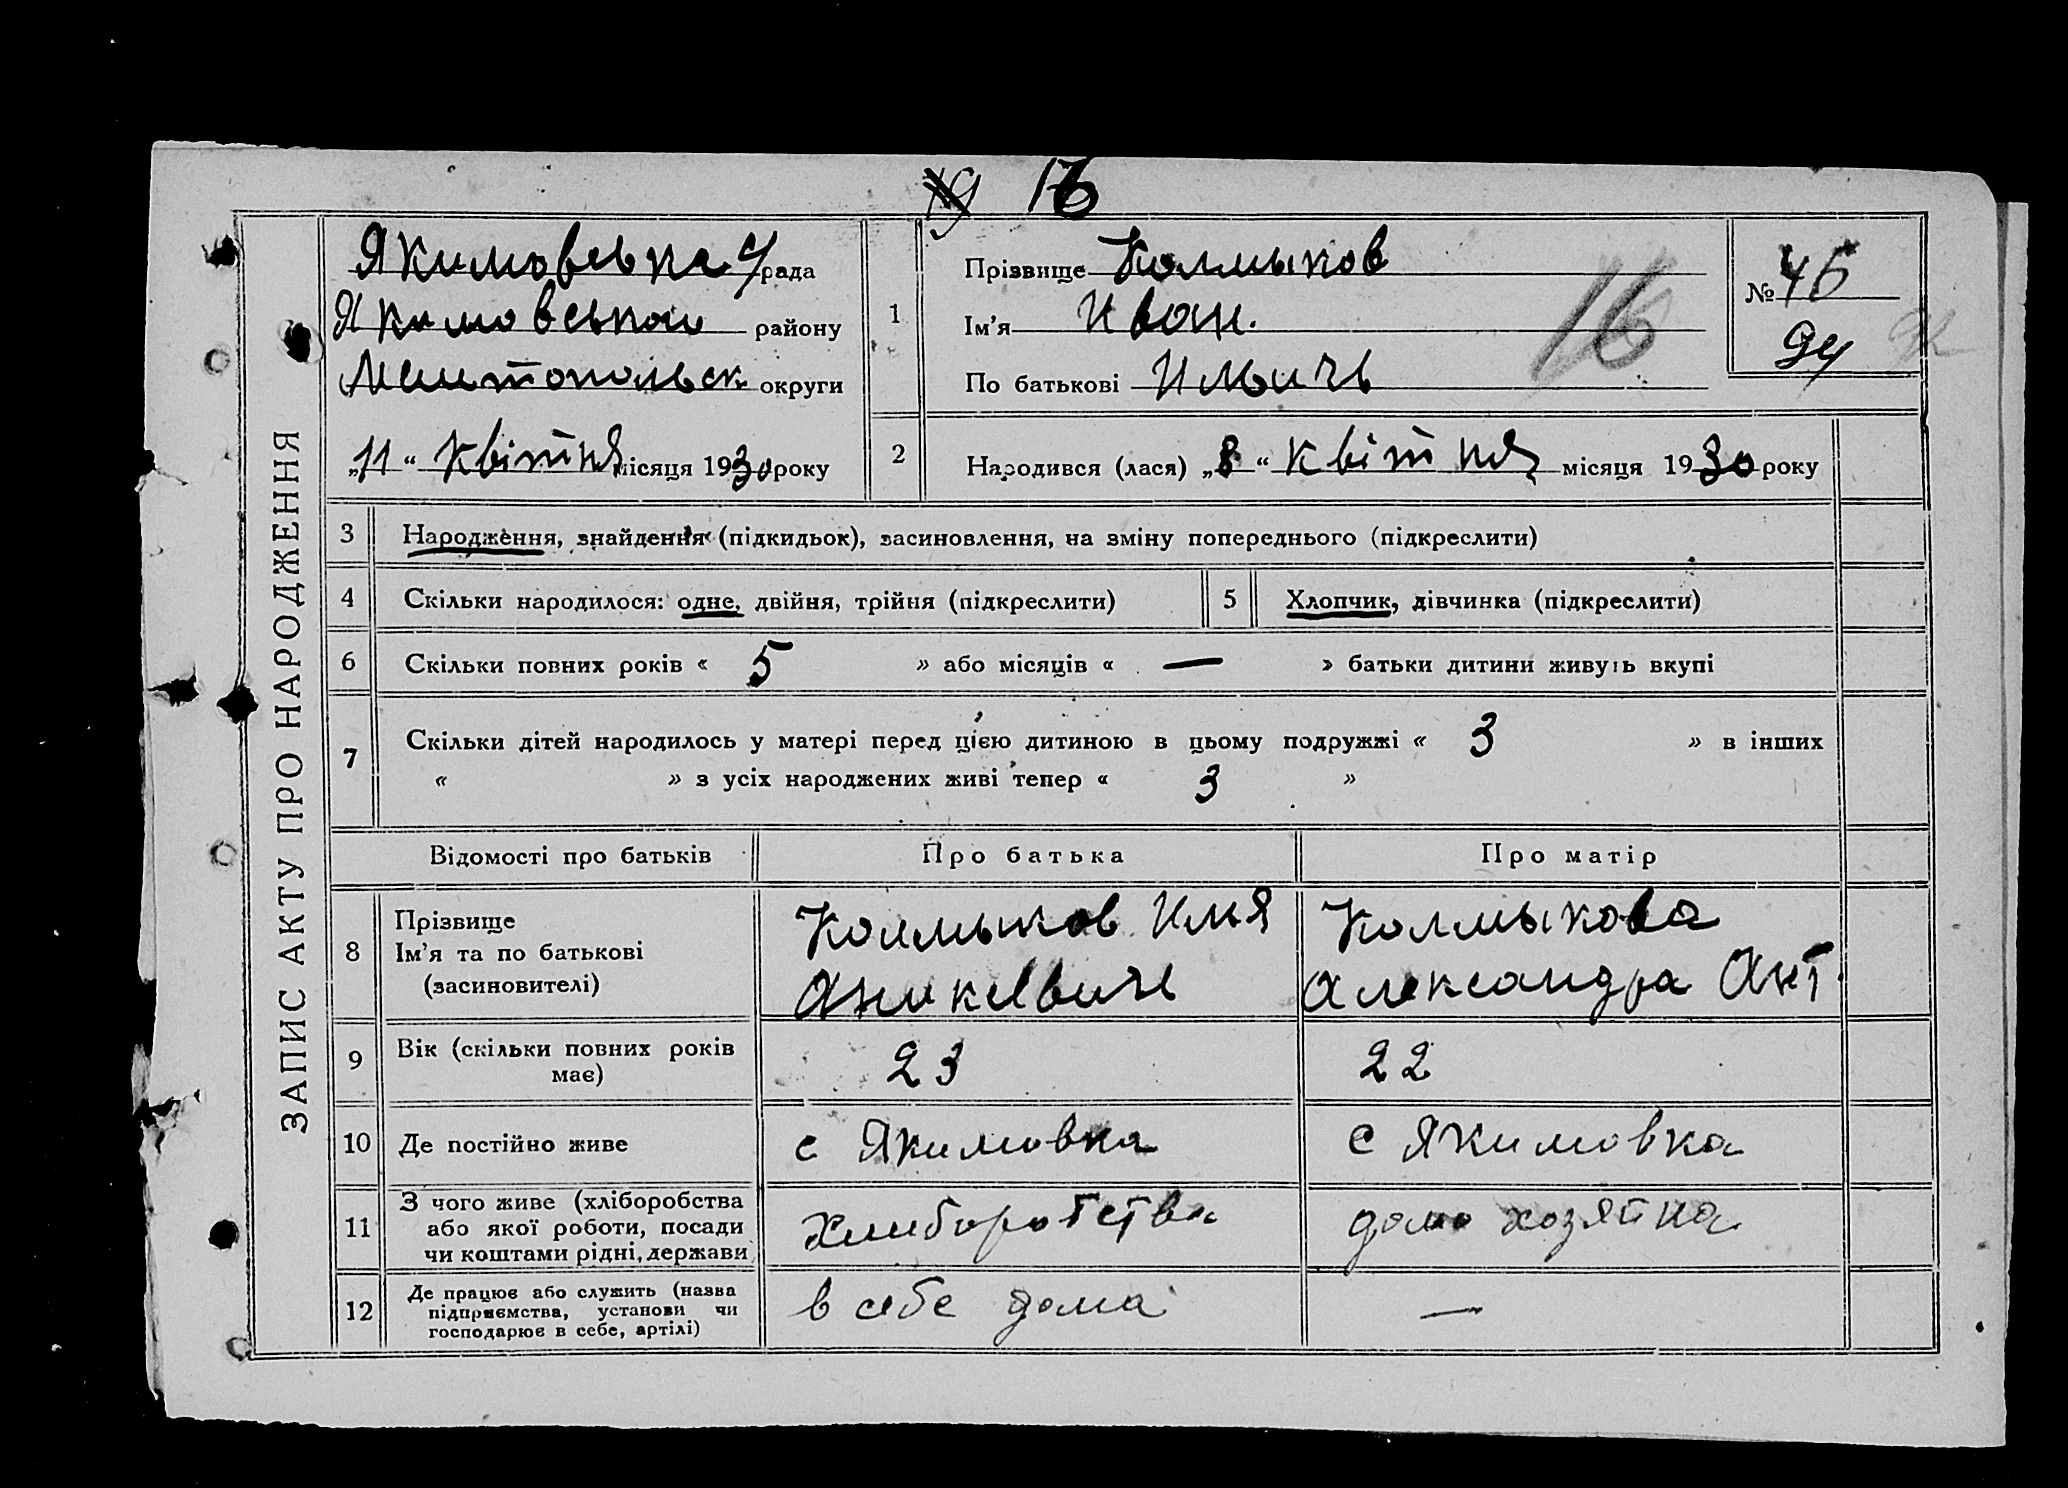 16
ЗАПИС АКТУ ПРО НАРОДЖЕННЯ
Якимовська рада
Якимовськои району
Мелитопольск округи
„11“ Квітня місяця 1930 року
1
Прізвище Колмыков
Ім'я Иван.
По батькові Ильичь
16
№ 46
94
2
Народився (лася) „8“ Квітня місяця 1930 року
3 Народження, знайдення (підкидьок), засиновлення, на зміну попереднього (підкреслити)
4 Скільки народилося: одне, двійня, трійня (підкреслити)
5 Хлопчик, дівчинка (підкреслити)
6 Скільки повних років « 5 » або місяців « — » батьки дитини живуть вкупі
7 Скільки дітей народилось у матері перед цією дитиною в цьому подружжі « 3 » в інших
« » з усіх народжених живі тепер « 3 »
Відомості про батьків Про батька Про матір
8
Прізвище
Ім'я та по батькові
(засиновителі)
Колмыков Илья
Аникевичь
Колмыкова
Александра Ант.
9 Вік (скільки повних років
має)
23
22
10 Де постійно живе
с Якимовка
с Якимовка
11
З чого живе (хліборобства
або якої роботи, посади
чи коштами рідні, держави
Хлиборотства
домо хозяйка
12
Де працює або служить (назва
підприємства, установи чи
господарює в себе, артілі)
в себе дома
—